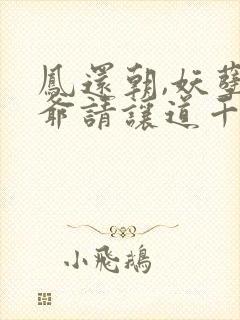 鳳還朝,妖孽
爺請讓道千
小飛鵝